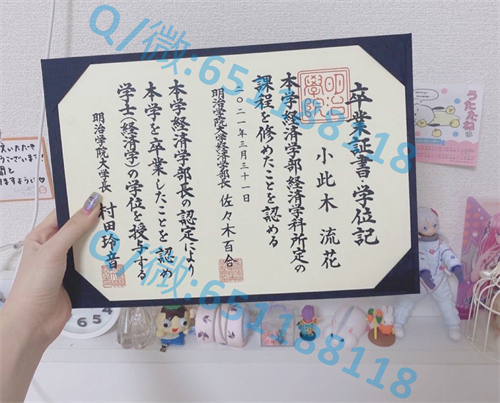 卒業証書・学位記
小此木 流花
本学経済学部経済学科所定の
課程を修めたことを認める
二〇二一年三月三十一日
明治学院大学経済学部長 佐々木百合
本学経済学部長の認定により
本学を卒業したことを認め
学士(経済学)の学位を授与する
明治学院大学長 村田玲音
Q/微:651188118
Q/微:651188118
うたたね
6 5 4